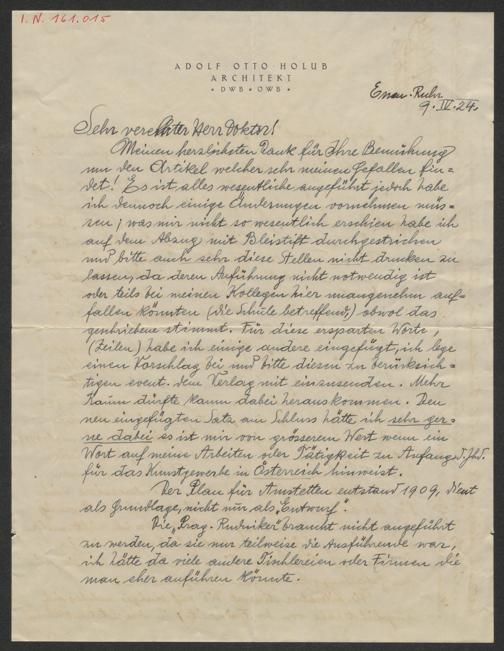 I. N. 161.015
ADOLF OTTO HOLUB
ARCHITEKT
• DWB • OWB •
Essen-Ruhr
9. IV. 24.
Sehr verehrter Herr Doktor!
Meinen herzlichsten Dank für Ihre Bemühung
um den Artikel welcher sehr meinen Gefallen fin=
det! Es ist alles wesentliche angeführt jedoch habe
ich dennoch einige Änderungen vornehmen müs=
sen; was mir nicht so wesentlich erschien habe ich
auf dem Abzug mit Bleistift durchgestrichen
und bitte auch sehr diese Stellen nicht drucken zu
lassen, da deren Anführung nicht notwendig ist
oder teils bei meinen Kollegen hier unangenehm auf=
fallen könnten (die Schule betreffend,) obwol das
geschriebene stimmt. Für diese ersparten Worte,
(Zeilen) habe ich einige andere eingefügt, ich lege
einen Vorschlag bei und bitte diesen zu berücksich=
tigen event. dem Verlag mit einzusenden. Mehr
Raum dürfte kaum dabei herauskommen. Den
neu eingefügten Satz am Schluss hätte ich sehr ger=
ne dabei es ist mir von grösserem Wert wenn ein
Wort auf meine Arbeiten oder Tätigkeit zu Anfang d. Jhd.
für das Kunstgewerbe in Österreich hinweist.
Der Plan für Amstetten entstand 1909, dient
als Grundlage, nicht nur als „Entwurf".
Die „Prag-Rudniker" braucht nicht angeführt
zu werden, da sie nur teilweise die Ausführende war,
ich hätte da viele andere Tischlereien oder Firmen die
man eher anführen könnte.